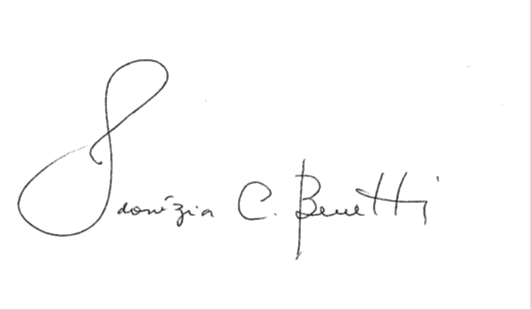 Idonézia C. Benetti